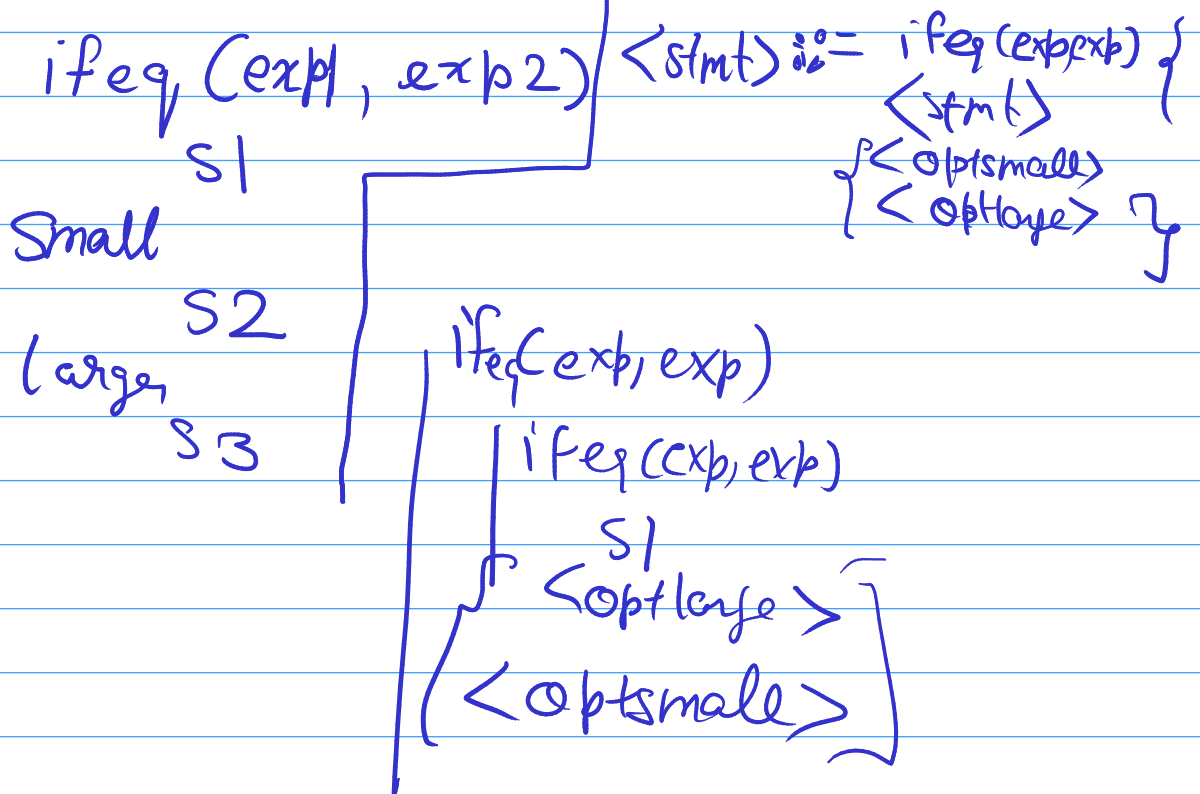 ifeq (exp1, exp2)
S1
Small
S2
large
S3
<stmt> ::= ifeq(exp,exp) {
<stmt>
{ <optsmall>
<optlarge> }
}
ifeq(exp, exp)
ifeq(exp, exp)
S1
<optlarge>
<optsmall>